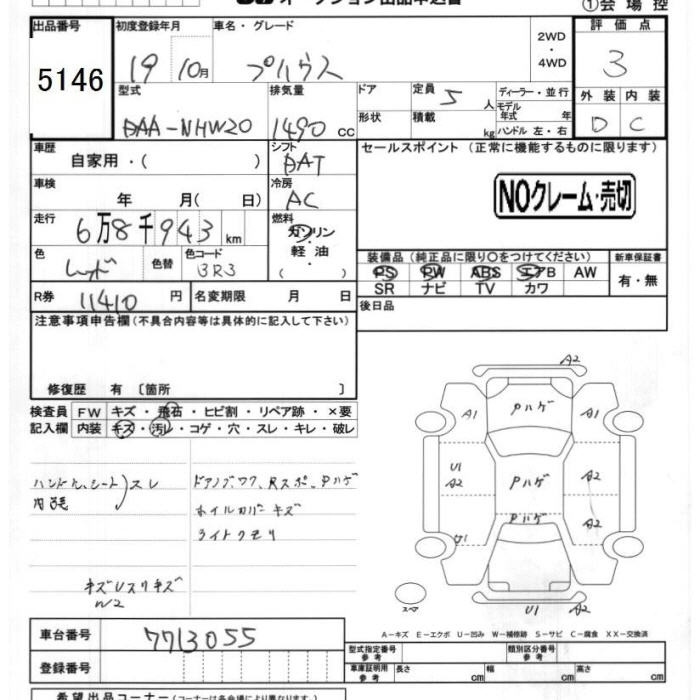 オークション出品申込書
①会場控
出品番号 初度登録年月 車名・グレード 2WD ・ 4WD 評価点
5146 19 10月 プリウス 3
型式 排気量 ドア 定員 5 人 ディーラー・並行 外装 内装
DAA-NHW20 1490 cc 形状 積載 kg モデル年式 年 D C
ハンドル 左・右
車歴 自家用・( ) シフト DAT セールスポイント (正常に機能するものに限ります)
車検 年 月( 日) 冷房 AC NOクレーム・売切
走行 6万8千943km 燃料 ガソリン・軽油・( )
色 レッド 色替 色コード 3R3
装備品 (純正品に限り○をつけてください) 新車保証書
PS PW ABS エアB AW 有・無
SR ナビ TV カワ
R券 11410 円 名変期限 月 日 後日品
注意事項申告欄(不具合内容等は具体的に記入して下さい)
修復歴 有 〔箇所 〕
検査員 FW キズ・飛石・ヒビ割・リペア跡・×要
記入欄 内装 キズ・汚レ・コゲ・穴・スレ・キレ・破レ
ハンドル、シート)スレ ドアノブ、ワク、Rスポ、Pハゲ
ホイルカバー キズ
ライトクモリ
キズUスリキズ
W2
A2
A1 Pハゲ A1
U1 A2 Pハゲ A2
Pハゲ A2
U1
スペア U1 A2
A-キズ E-エクボ U-凹み W-補修跡 S-サビ C-腐食 XX-交換済
車台番号 7713055
型式指定番号 参考 類別区分番号 参考
登録番号 車庫証明用 参考 長さ cm 幅 cm 高さ cm
希望出品コーナー (コーナーは各会場により異なります)